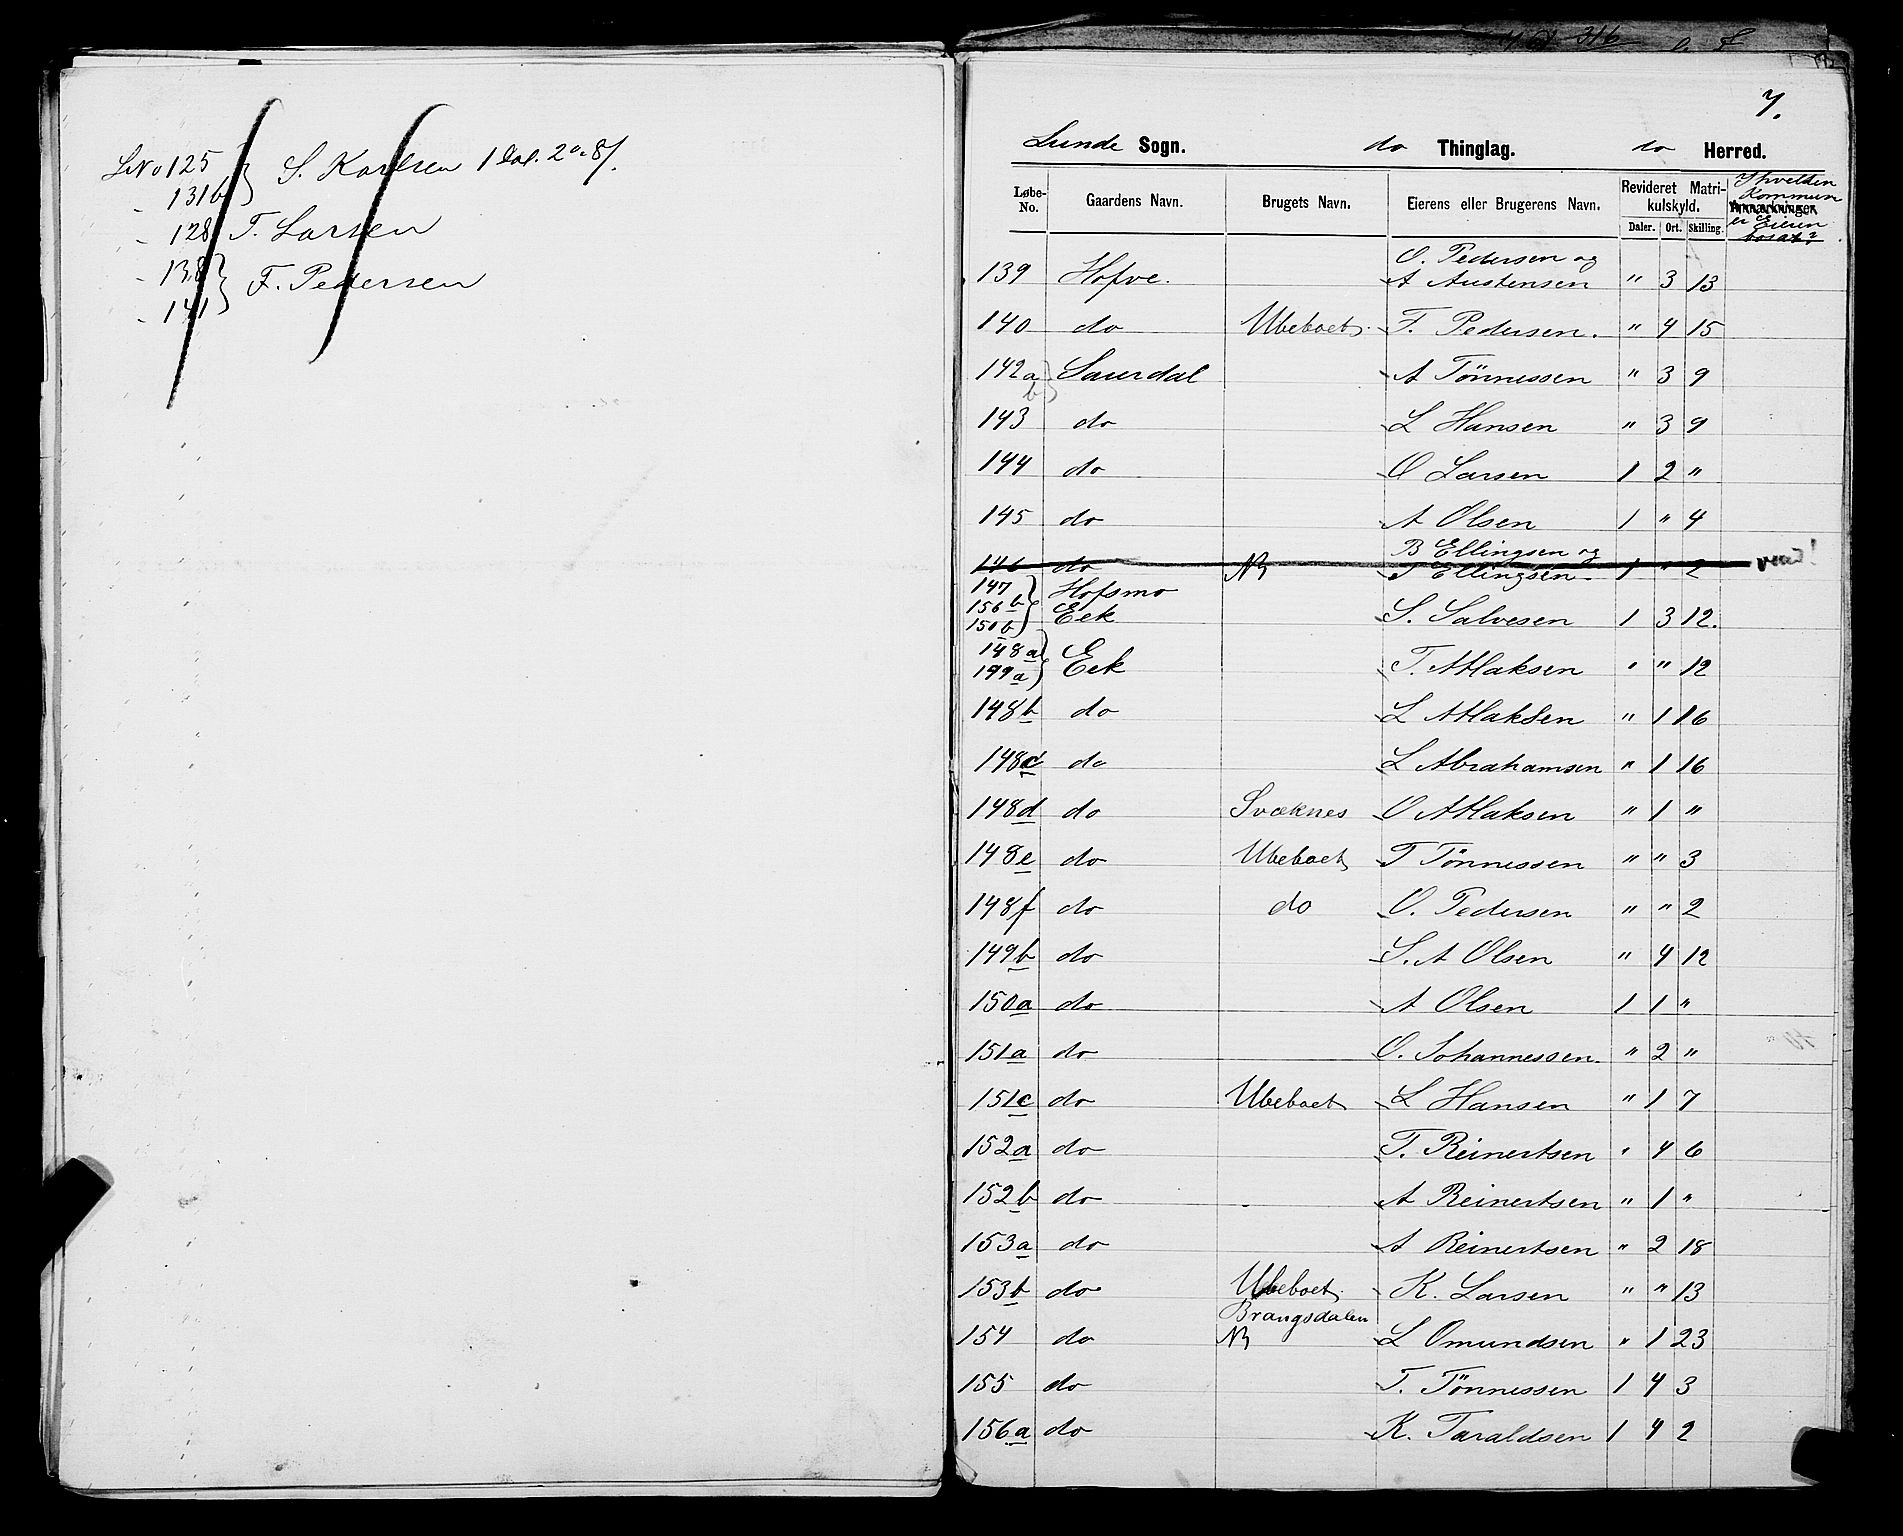 LNo 125 } S. Karlsen 1 Dal. 2 o. 8 s.
" 131b
" 128 T. Larsen
" 138 } F. Pedersen
" 141
7.
Lunde Sogn. do Thinglag. do Herred.
Løbe-No. Gaardens Navn. Brugets Navn. Eierens eller Brugerens Navn. Revideret Matrikulskyld. Daler. Ort. Skilling. I hvilken Kommun er Eieren bosat?
139 Hofve. O. Pedersen og A Austensen " 3 13
140 do Ubeboet. F. Pedersen. " 4 15
142a b } Saurdal A Tönnessen " 3 9
143 do L Hansen " 3 9
144 do O Larsen 1 2 "
145 do A Olsen 1 " 4
146 do NB B Ellingsen og T Ellingsen 1 " 2
147 156b 150b } Hofsmo Eek S. Salvesen 1 3 12.
148a 149a } Eek T. Atlaksen " " 12
148b do L Atlaksen " 1 16
148c do L Abrahamsen " 1 16
148d do Svæknes O Atlaksen " 1 "
148e do Ubeboet T Tönnessen " " 3
148f do do O. Pedersen " " 2
149b do S. A Olsen " 4 12
150a do A Olsen 1 1 "
151a do O. Johannessen " 2 "
151c do Ubeboet L Hansen " 1 7
152a do T. Reinertsen " 4 6
152b do A Reinertsen " 1 "
153a do A Reinertsen " 2 18
153b do Ubeboet K. Larsen " " 13
154 do Brangsdalen NB L Omundsen " 1 23
155 do T. Tönnessen 1 4 3
156a do K. Taraldsen 1 4 2